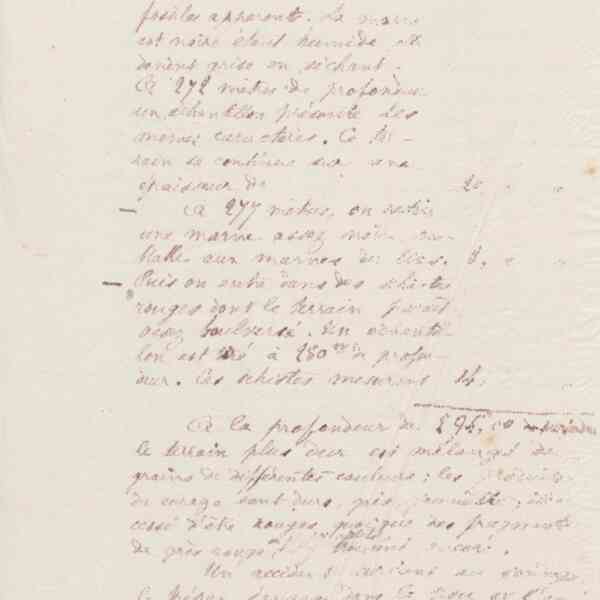 fossiles apparent. La marne
est noire étant humide et
devient grise en séchant.
A 272 mètres de profondeur
un échantillon présente les
mêmes caractères. Ce ter-
rain se continue sur une
épaisseur de 20. " "
— A 277 mètres, on retire
une marne assez noire sem-
blable aux marnes du lias. 8. " "
— Puis on entre dans des schistes
rouges dont le terrain paraît
assez boulversé. Un échantil-
lon est tiré à 280 m de profon-
deur. Ces schistes mesurent 14. "
A la profondeur de 294,
le terrain plus dur est mélangé de
grains de différentes couleurs; les
de curage sont durs,
cessé d'être rouges quoique des fragments
de grès rouges encore.
Un accident au